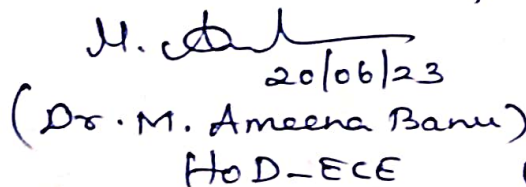 20/06/23
(Dr. M. Ameena Banu)
HoD-ECE